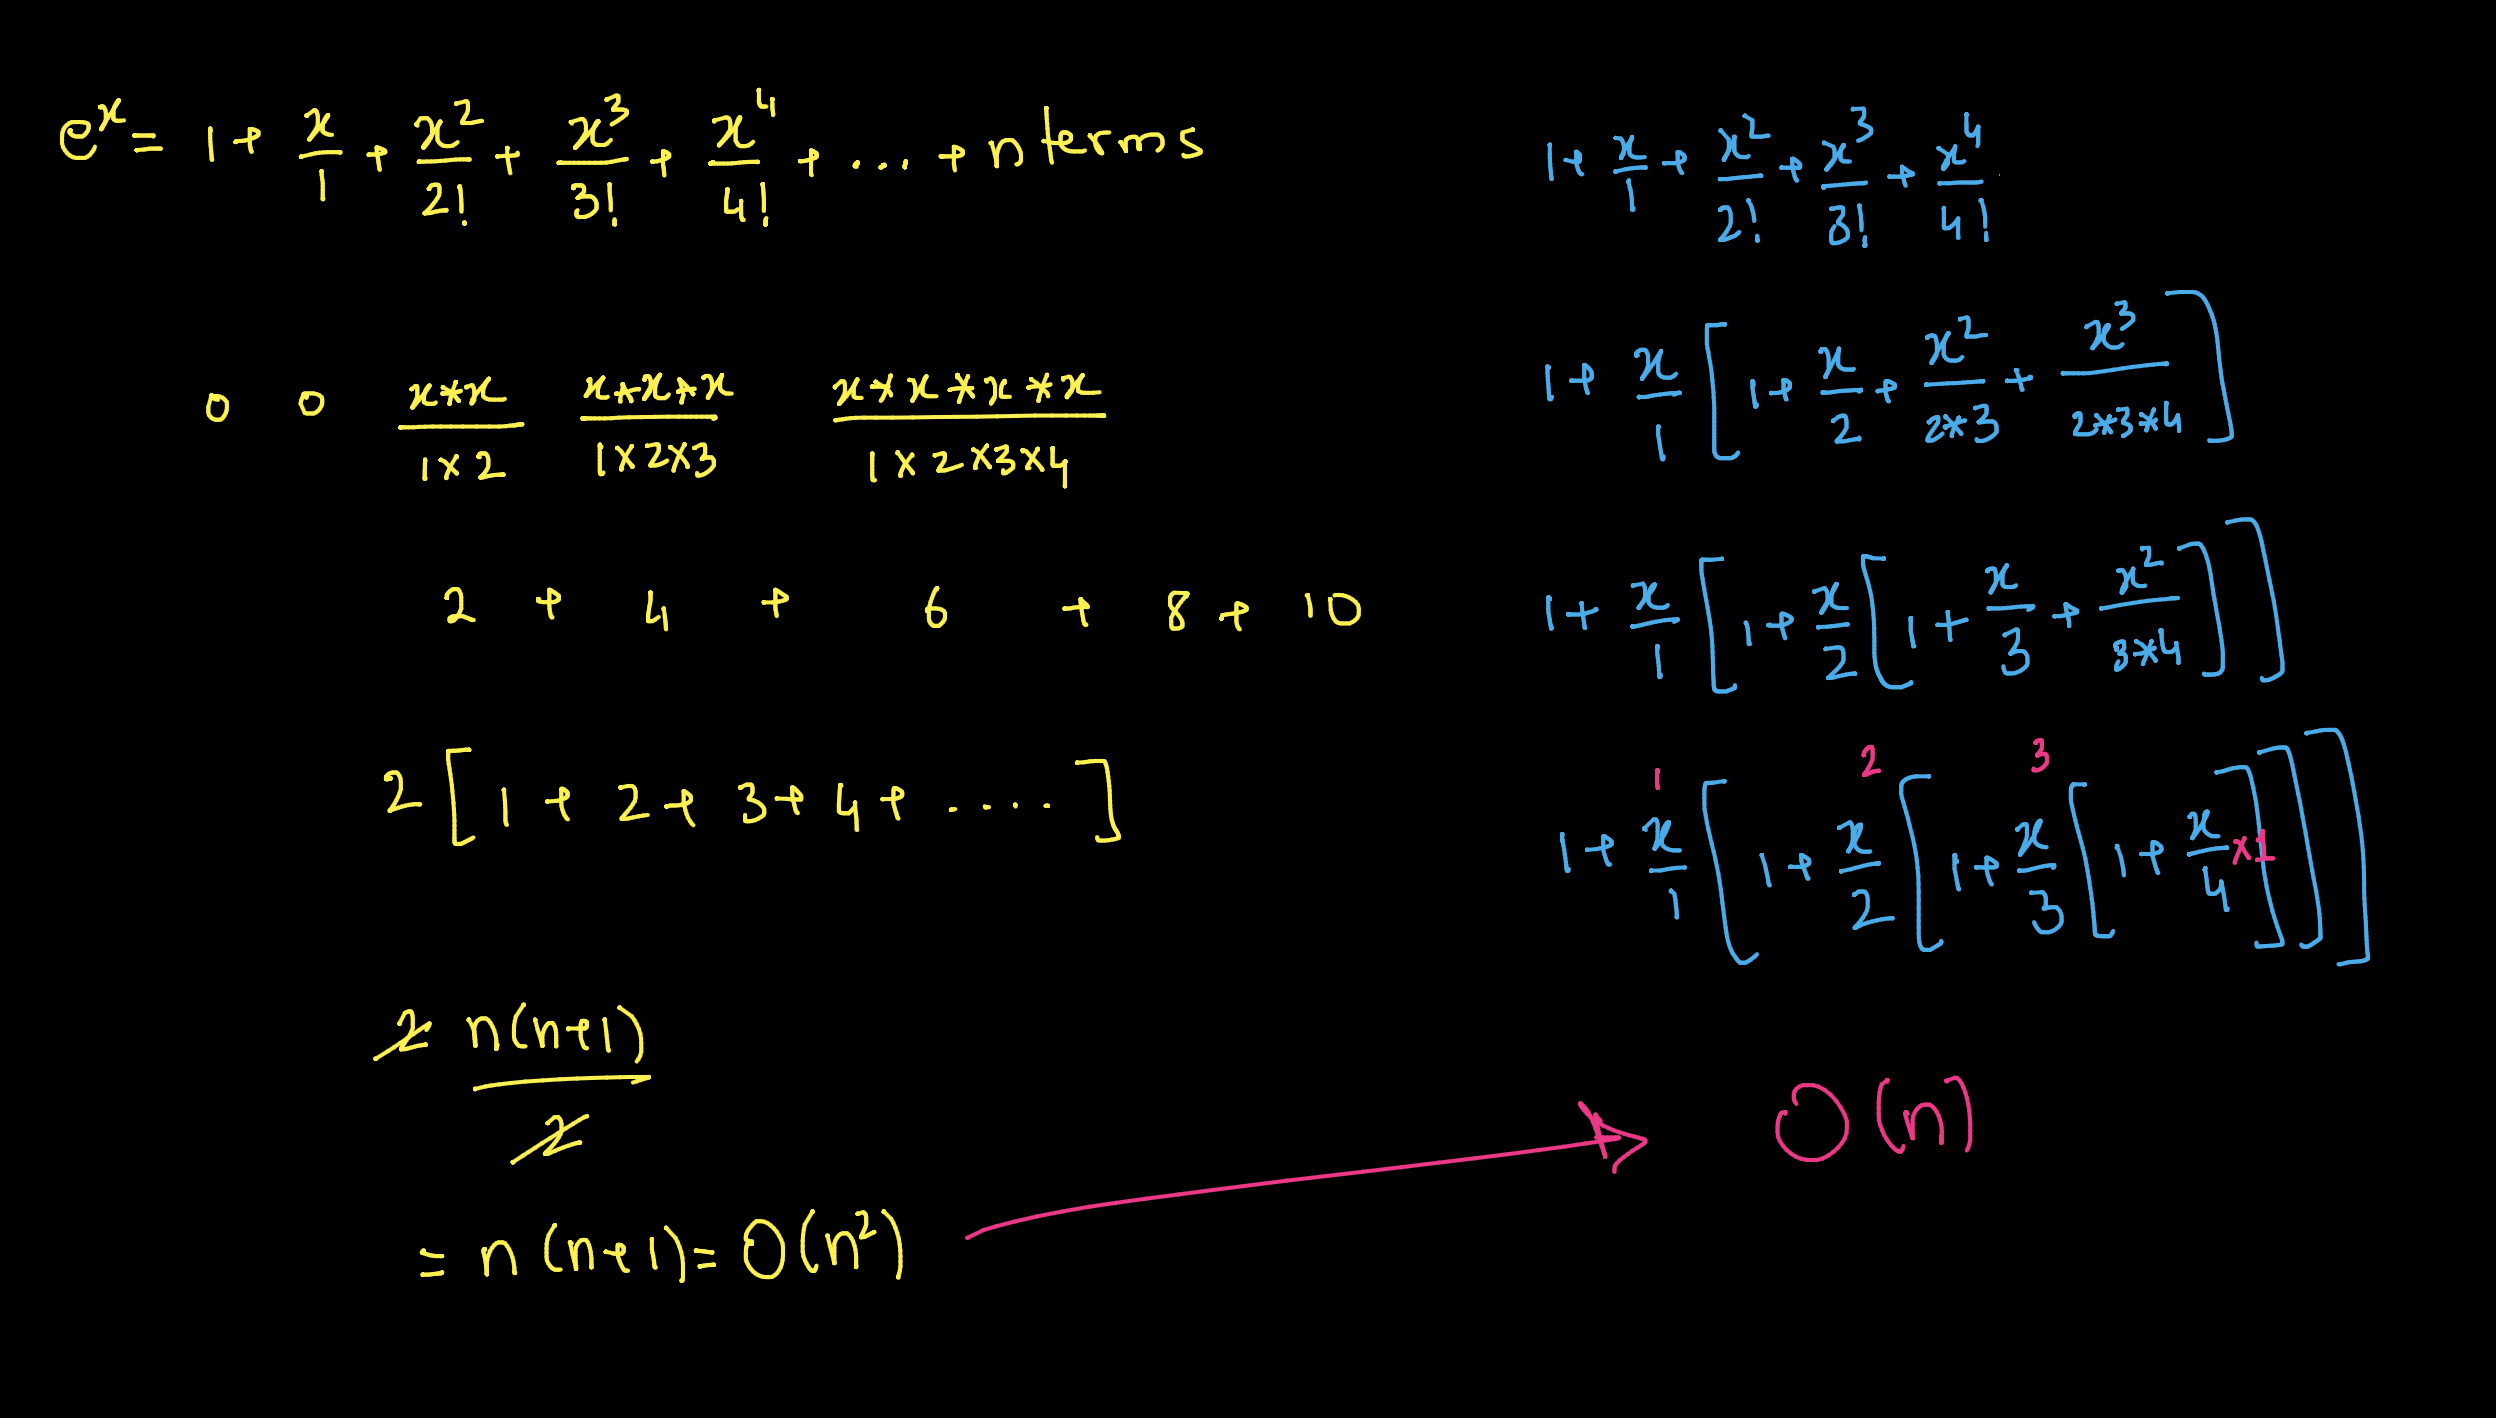 e^x = 1 + x/1 + x^2/2! + x^3/3! + x^4/4! + ... + n terms
0 0 x*x/1×2 x*x*x/1×2×3 x*x*x*x/1×2×3×4
2 + 4 + 6 + 8 + 10
2[1 + 2 + 3 + 4 + ....]
2 n(n+1)/2
= n(n+1) = O(n^2)
1 + x/1 + x^2/2! + x^3/3! + x^4/4!
1 + x/1[1 + x/2 + x^2/2*3 + x^3/2*3*4]
1 + x/1[1 + x/2[1 + x/3 + x^2/3*4]]
1 2 3
1 + x/1[1 + x/2[1 + x/3[1 + x/4 ×1]]]
O(n)